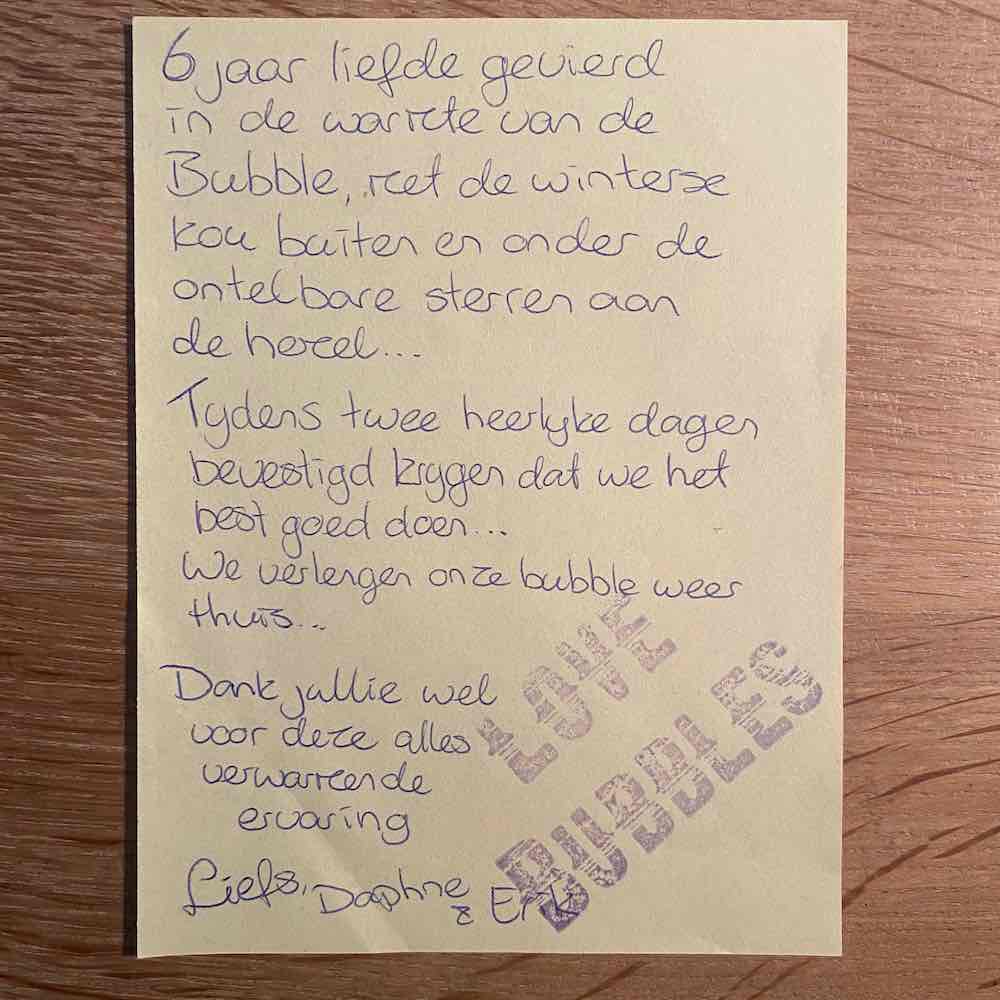 6 jaar liefde gevierd
in de warmte van de
Bubble, met de winterse
kou buiten en onder de
ontelbare sterren aan
de hemel...
Tydens twee heerlyke dagen
bevestigd krygen dat we het
best goed doen...
We verlengen onze bubble weer
thuis...
Dank jullie wel
voor deze alles
verwarmende
ervaring
Liefs, Daphne
& Erik
LOVE
BUBBLES